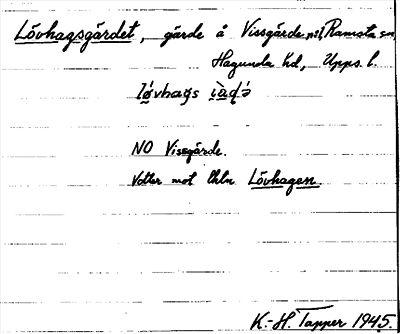 Lövhagsgärdet, gärde å Vissgärde, Ramsta sn,
Hagunda hd, Upps. l.
NO Vissgärde.
Vetter mot lhln Lövhagen.
K.-H. Tapper 1945.